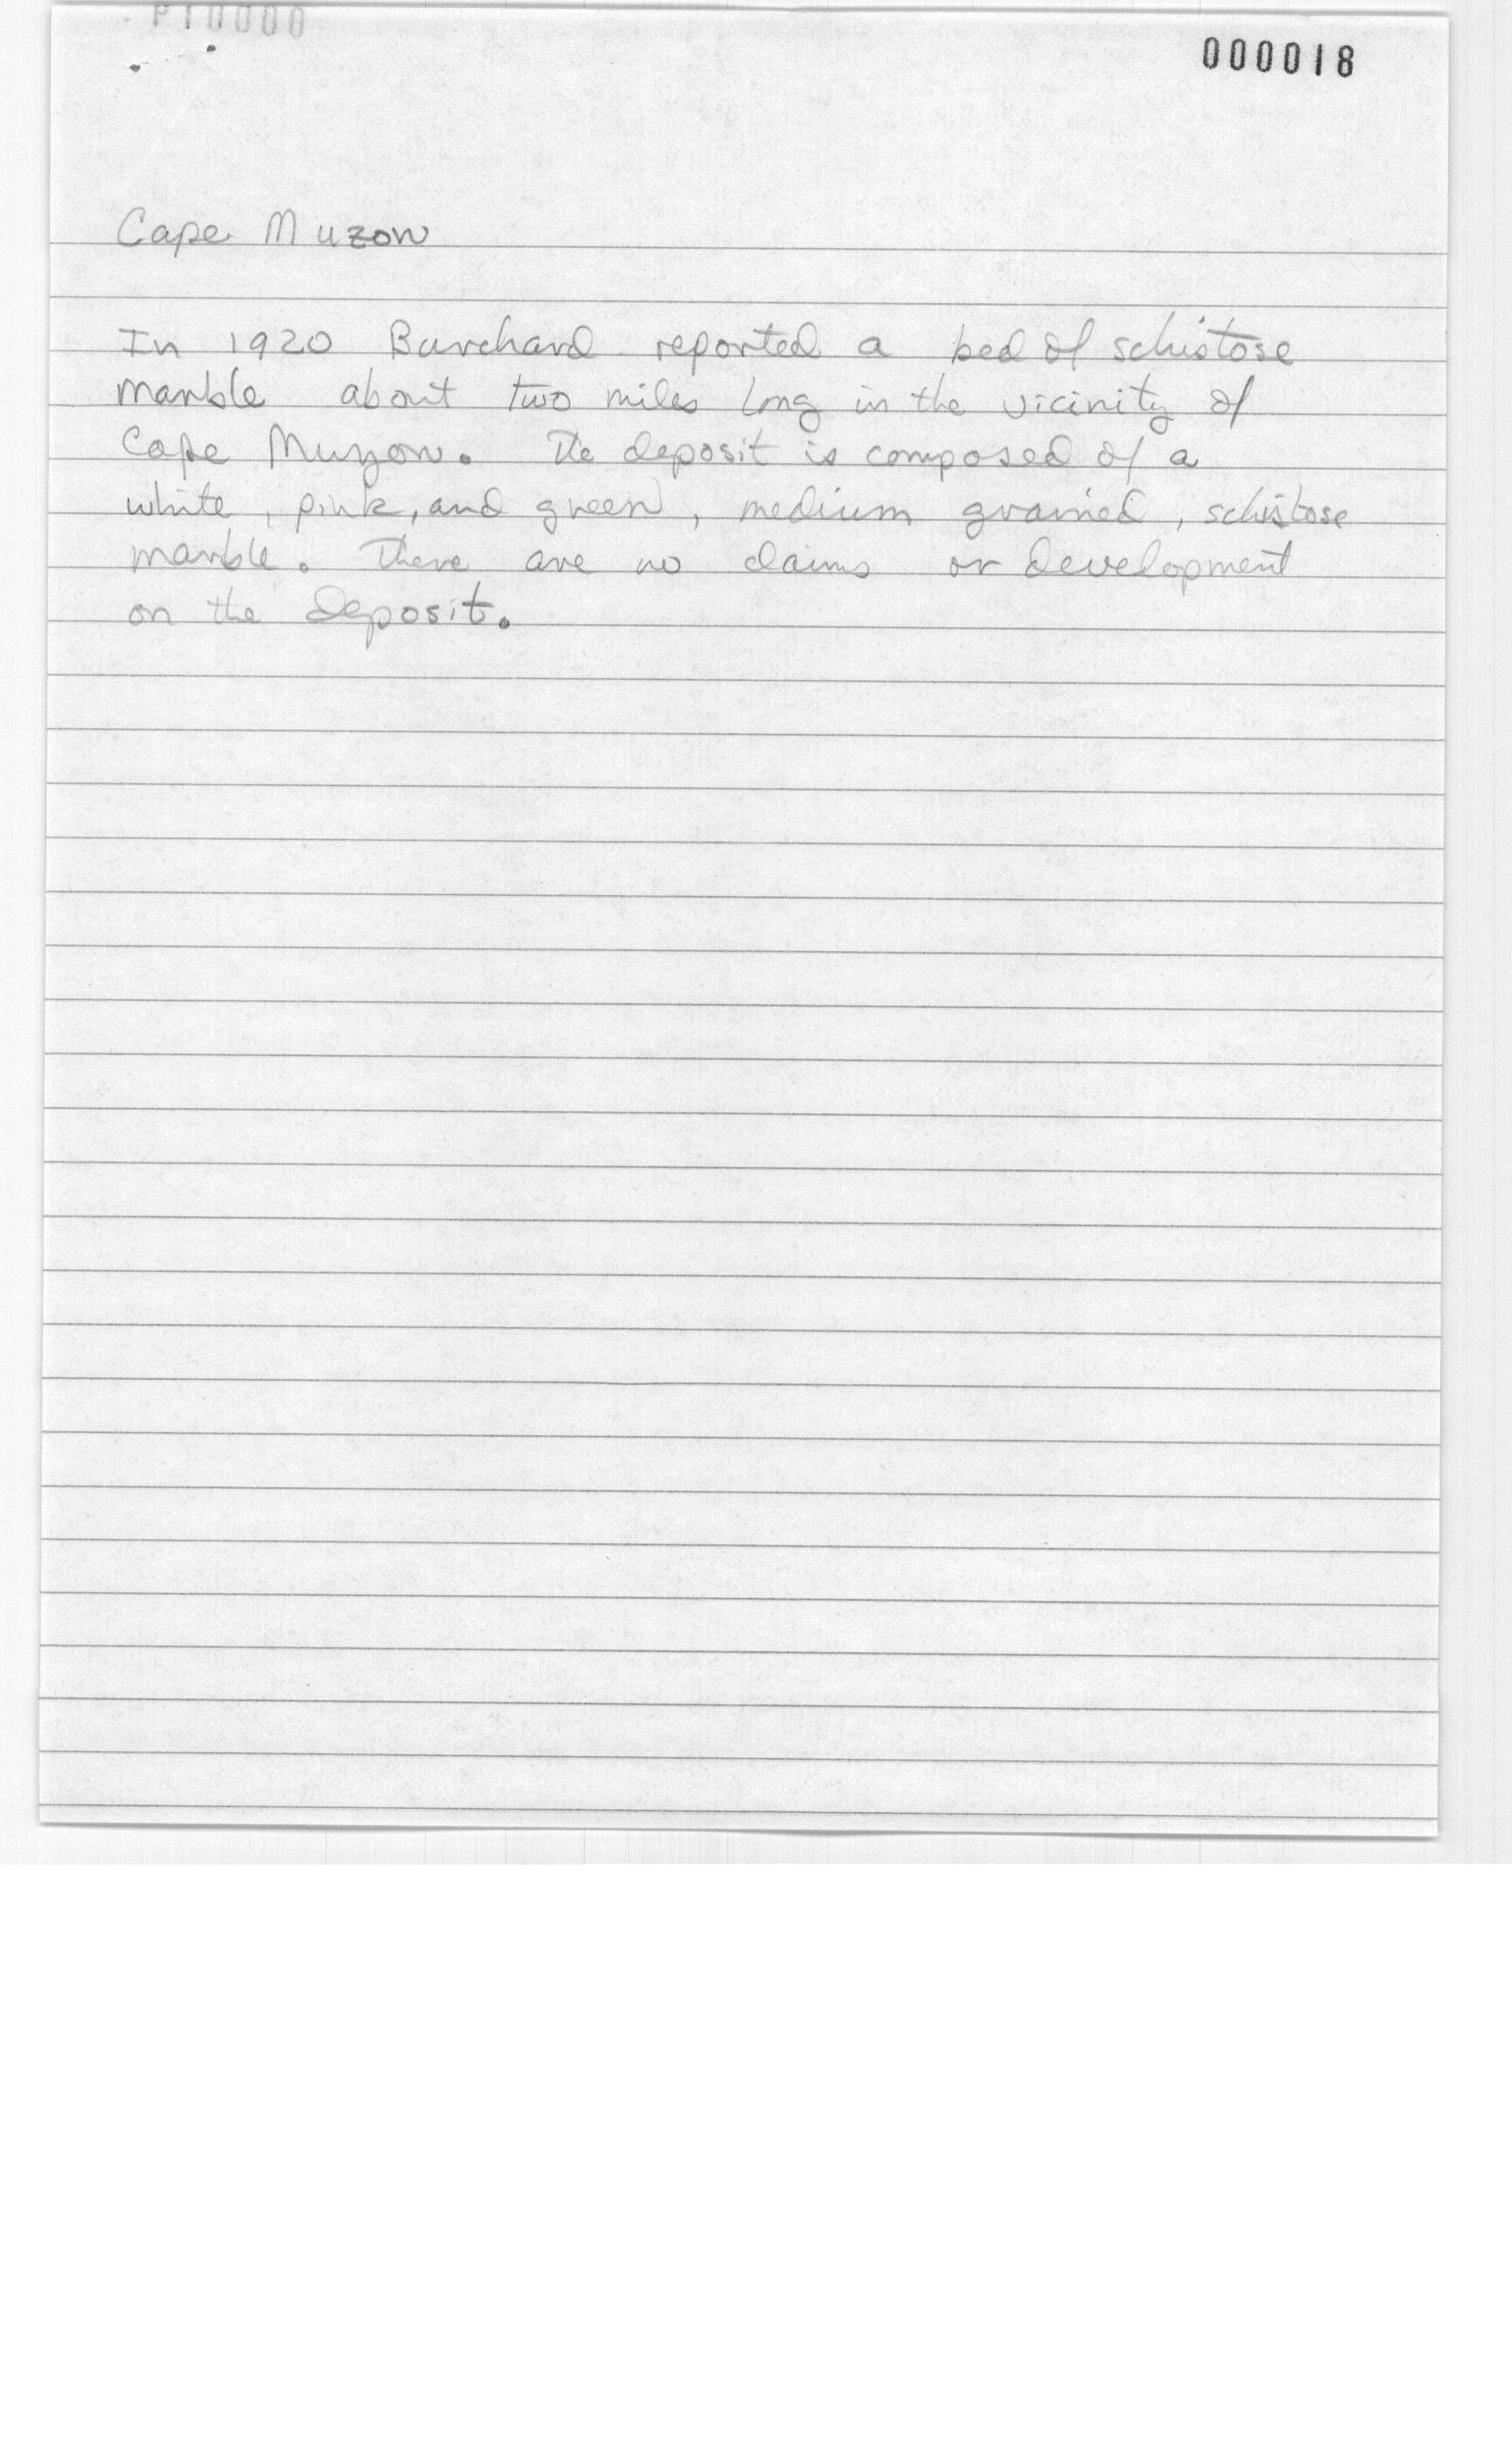 000018
Cape Muzon
In 1920 Burchard reported a bed of schistose
marble about two miles long in the vicinity of
Cape Muzon. The deposit is composed of a
white, pink, and green, medium grained, schistose
marble. There are no claims or development
on the deposit.